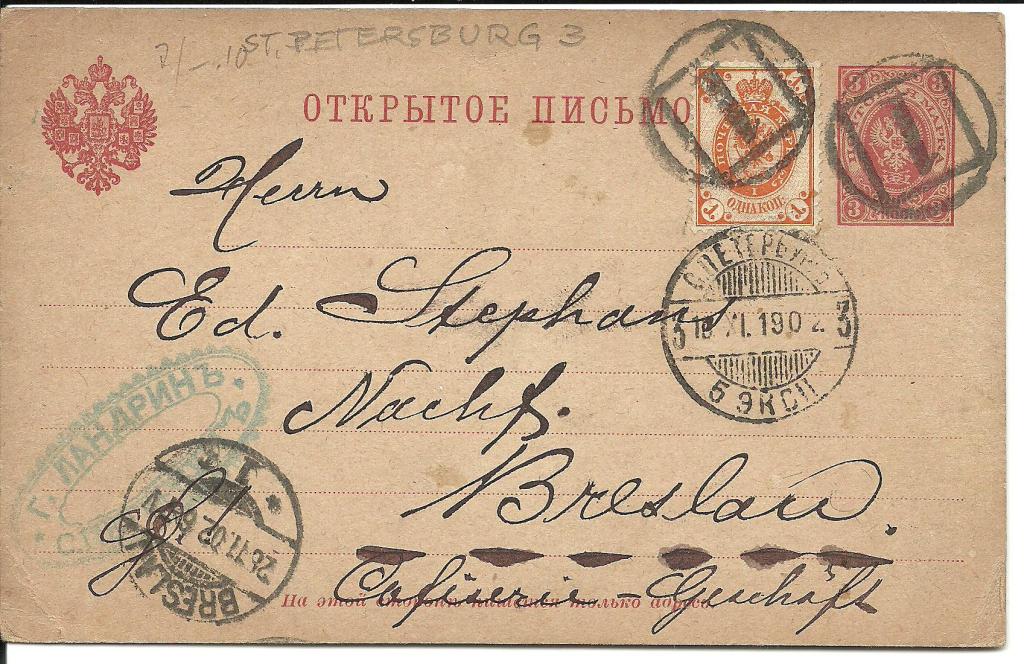 7/-.10 ST. PETERSBURG 3
ОТКРЫТОЕ ПИСЬМО
1
1
ПОЧТОВАЯ МАРКА
1 ОДНА КОП. 1
3 ПОЧТОВАЯ МАРКА 3
3 3
Herrn
С.ПЕТЕРБУРГ
3 XI.1902 3
5 ЭКСП
Ed. Stephans
Nachf.
Г. ЛАНДРИНЪ
Breslau.
BRESLAU
26.11.02
Geschäft
На этой сторонѣ пишется только адресъ